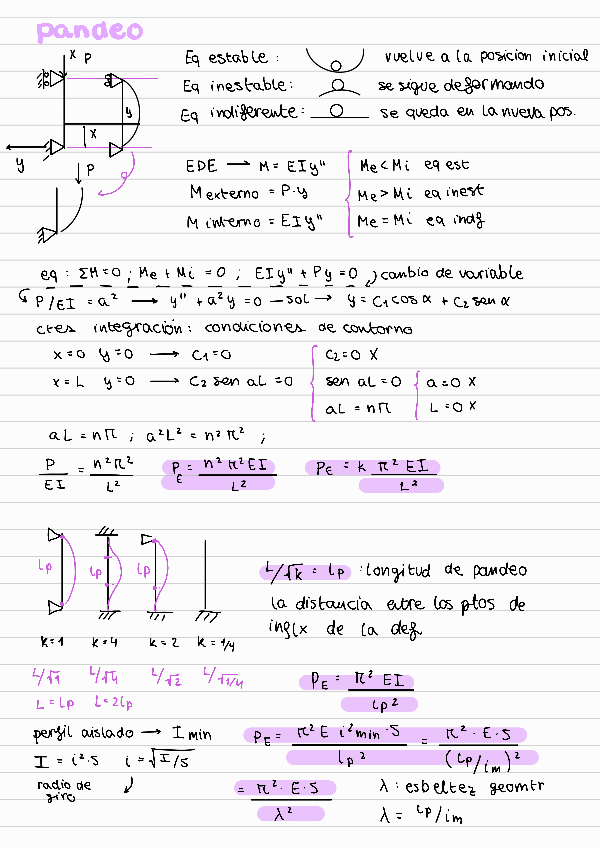 pandeo
x P
y
x
y
P
Eq estable : vuelve a la posicion inicial
Eq inestable : se sigue deformando
Eq indiferente: se queda en la nueva pos.
EDE → M = EIy"
M externo = P·y
M interno = EIy"
Me < Mi eq est
Me > Mi eq inest
Me = Mi eq indf
eq : ΣM=0 ; Me + Mi = 0 ; EIy" + Py = 0 , cambio de variable
P/EI = a² → y" + a²y = 0 — sol → y = C1 cos α + C2 sen α
ctes integración: condiciones de contorno
x=0 y=0 → C1=0
x=L y=0 → C2 sen aL =0
C2=0 X
sen aL =0
aL = nπ
a=0 X
L=0 X
aL = nπ ; a²L² = n²π² ;
P/EI = n²π²/L² PE = n²π²EI/L² PE = k π²EI/L²
lp lp lp
k=1 k=4 k=2 k=1/4
L/√1 L/√4 L/√2 L/√1/4
L=lp L=2lp
L/√k = lp : longitud de pandeo
la distancia entre los ptos de
inflx de la def
PE = π² EI/lp²
perfil aislado → I min
I = i²·S i = √I/S
radio de
giro
PE = π² E i²min·S/lp² = π²·E·S/(lp/im)²
= π²·E·S/λ²
λ : esbeltez geomtr
λ = lp/im